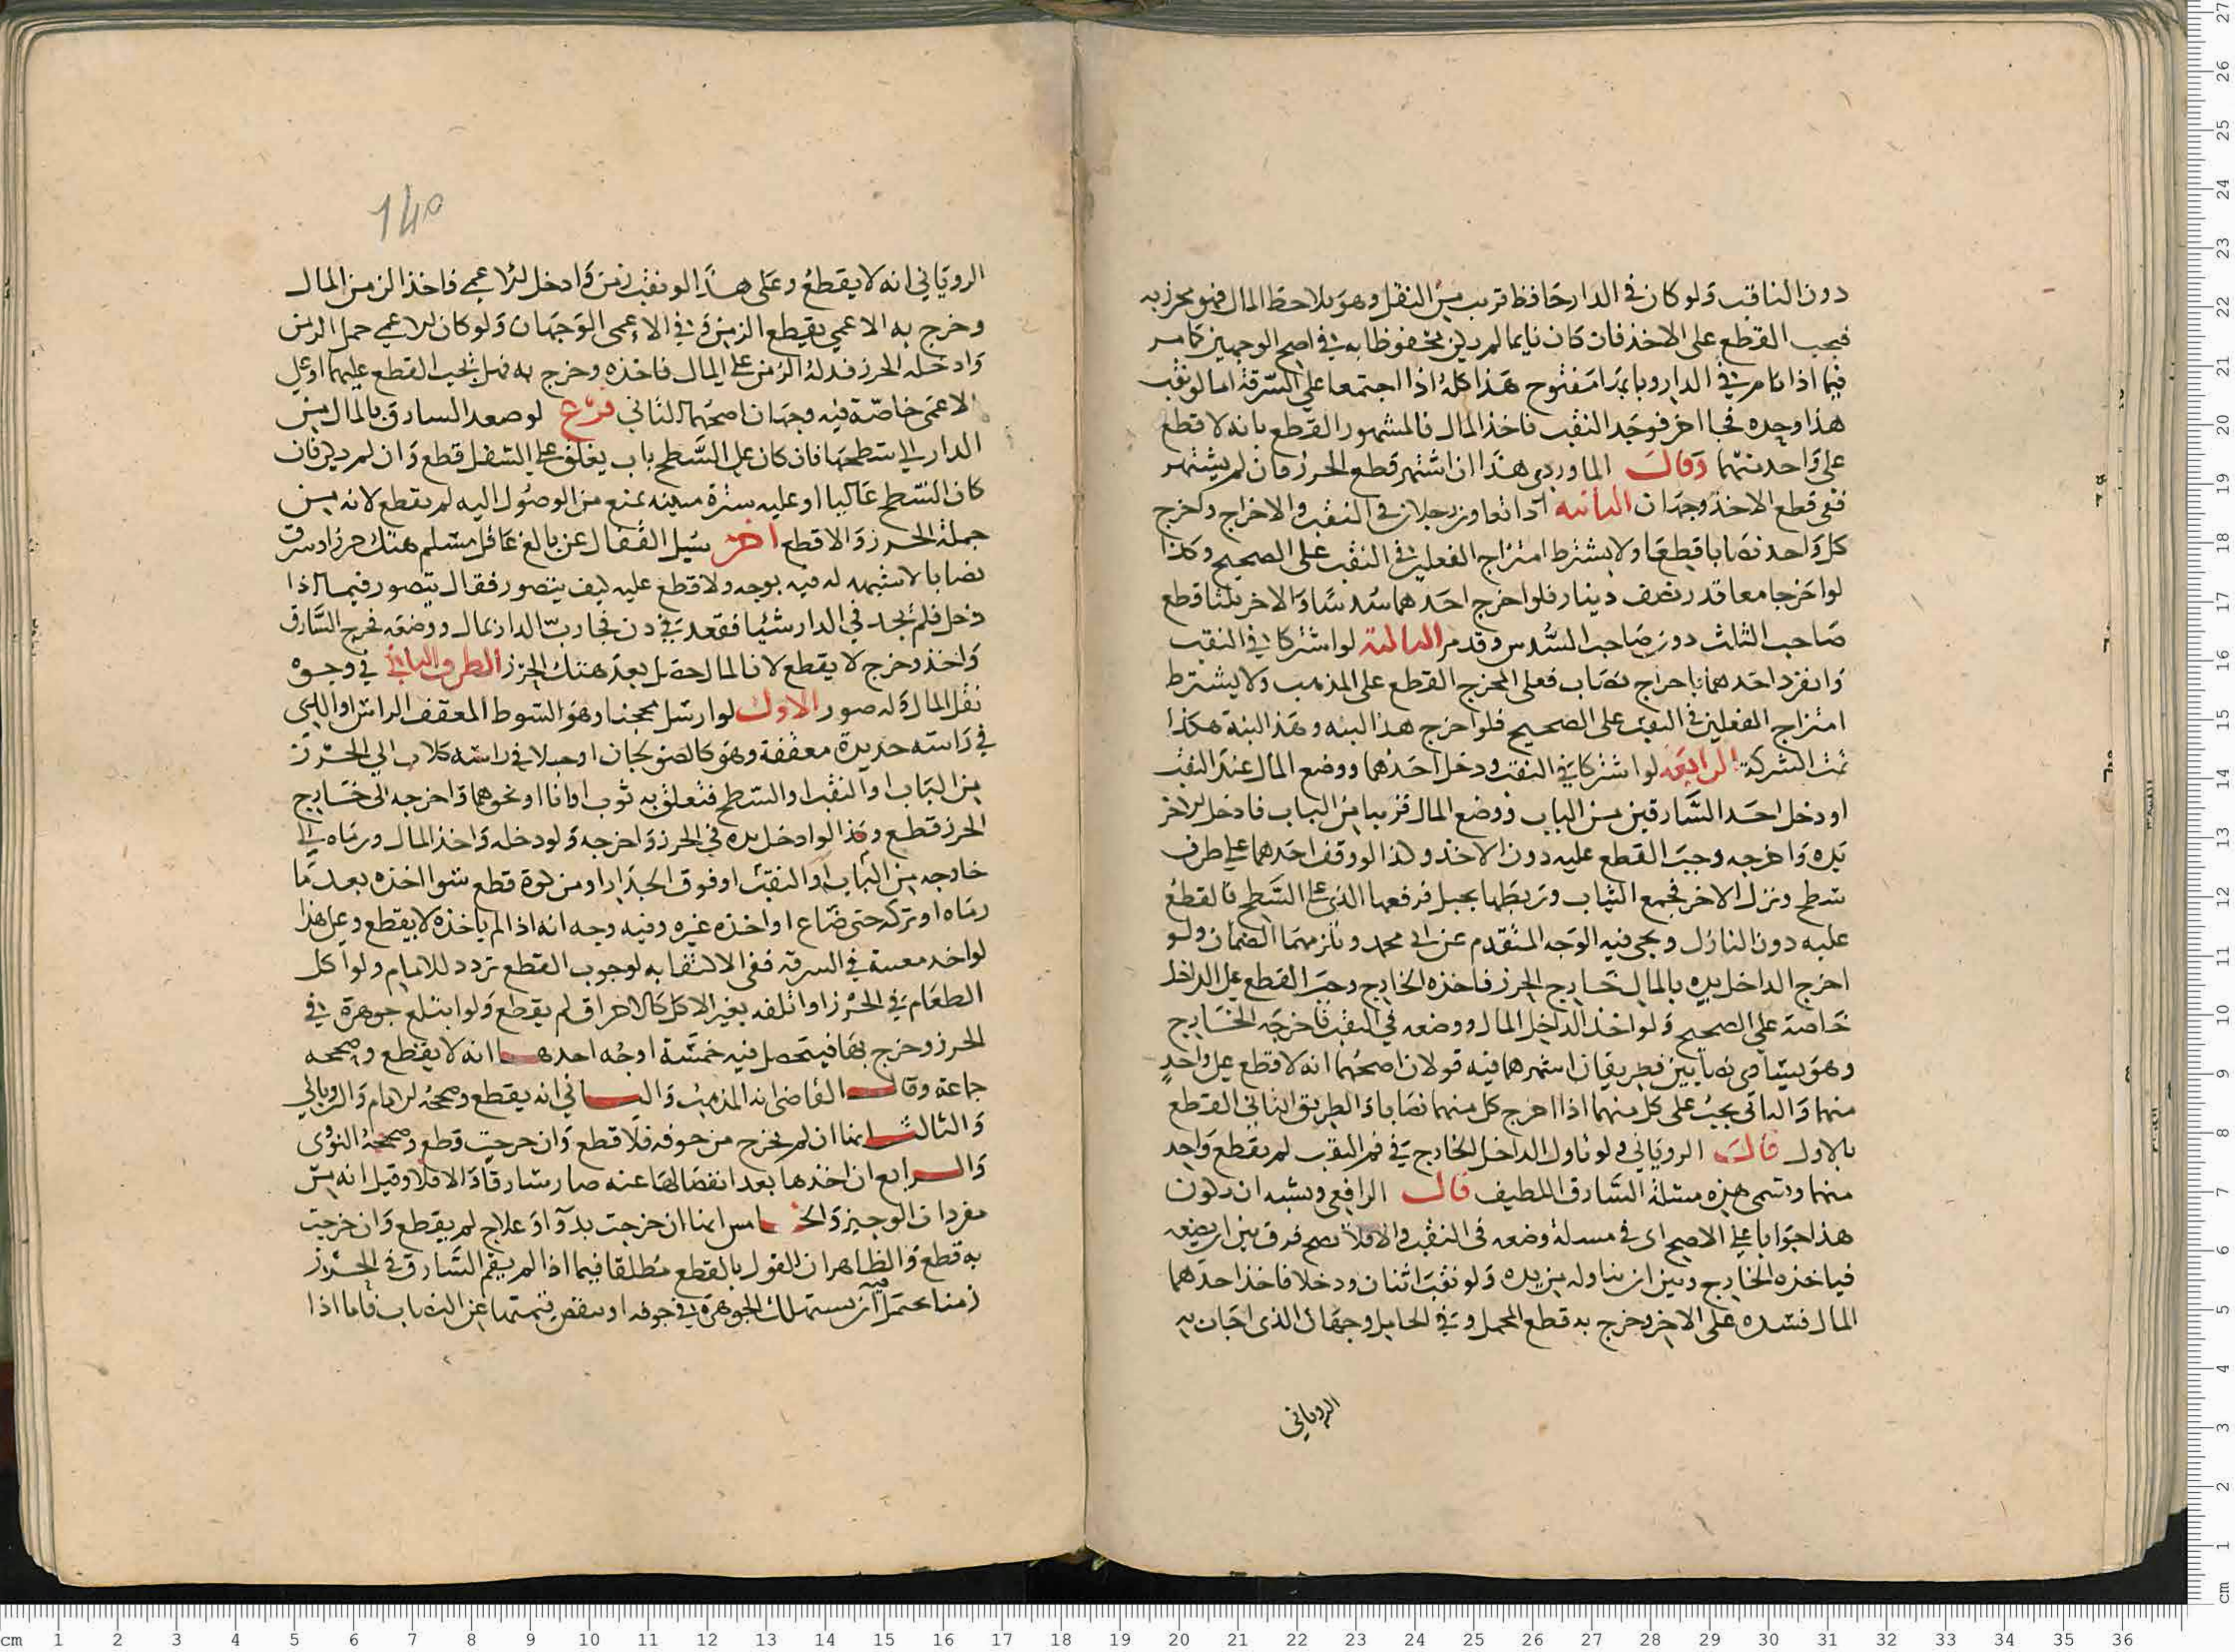 دون الناقب ولو كان في الدار حافظ قريب من النقل وهو يلاحظ المال فهو محرز به
فيجب القطع على الاخذ فان كان نايما لم يكن محفوظا به في اصح الوجهين كما مر
فيما اذا نام في الدار وبابها مفتوح هذا كله اذا اجتمعا على السرقة اما لو نقب
هذا وحده فجا اخر فوجد النقب فاخذ المال فالمشهور القطع بانه لا قطع
على واحد منهما وقال الماوردي هذا ان اشتهر قطع الحرز فان لم يشتهر
ففي قطع الاخذ وجهان الثانيه اذا تعاون رجلان في النقب والاخراج واخرج
كل واحد نصابا قطعا ولا يشترط امتزاج الفعلين في النقب على الصحيح وكذا
لو اخرجا معا قدر نصف دينار فلو اخرج احدهما سدسا والاخر ثلثا قطع
صاحب الثلث دون صاحب السدس وقد مر الثالثة لو اشتركا في النقب
وانفرد احدهما باخراج نصاب فعلى المخرج القطع على المذهب ولا يشترط
امتزاج الفعلين في النقب على الصحيح فلو اخرج هذا لبنه وهذا لبنة هكذا
تمت الشركة الرابعه لو اشتركا في النقب ودخل احدهما ووضع المال عند النقب
او دخل احد السارقين من الباب ووضع المال قريبا من الباب فادخل الاخر
يده واخرجه وجب القطع عليه دون الاخذ وكذا لو وقف احدهما على طرف
سطح ونزل الاخر فجمع الثياب وربطها بحبل فرفعها الذي على السطح فالقطع
عليه دون النازل ويجي فيه الوجه المتقدم عن ابي محمد ويلزمهما الضمان ولو
اخرج الداخل يده بالمال خارج الحرز فاخذه الخارج وجب القطع على الداخل
خاصة على الصحيح ولو اخذ الداخل المال ووضعه في النقب فاخرجه الخارج
وهو يساوي نصابين فطريقان اشهرهما فيه قولان اصحهما انه لا قطع على واحد
منهما والثاني يجب على كل منهما اذا اخرج كل منهما نصابا والطريق الثاني القطع
بالاول قال الروياني ولو ناول الداخل الخارج في فم النقب لم يقطع واحد
منهما وتسمى هذه مسئلة السارق اللطيف قال الرافعي ويشبه ان يكون
هذا جوابا على الاصح اي في مسئلة وضعه في النقب والا فلا يصح فرق بين ان يضعه
فياخذه الخارج وبين ان يناوله من يده ولو نقب اثنان ودخلا فاخذ احدهما
المال فشده على الاخر وخرج به قطع المحمل وفي الحامل وجهان الذي اجاب به
الروياني
140
الروياني انه لا يقطع وعلى هذا لو نقب زمن وادخل الاعمى فاخذ الزمن المال
وخرج به الاعمى يقطع الزمن وفي الاعمى الوجهان ولو كان الاعمى حمل الزمن
وادخله الحرز فدله الزمن على المال فاخذه وخرج به فهل يجب القطع عليهما او على
الاعمى خاصة فيه وجهان اصحهما الثاني فرع لو صعد السارق بالمال من
الدار الى سطحها فان كان على السطح باب يغلق على السفل قطع وان لم يكن فان
كان السطح عاليا او عليه سترة مبينه تمنع من الوصول اليه لم يقطع لانه من
جملة الحرز والا قطع اخر سئل القفال عن بالغ عاقل مسلم هتك حرزا وسرق
نصابا لا شبهه له فيه بوجه ولا قطع عليه كيف يتصور فقال يتصور فيما اذا
دخل فلم يجد في الدار شيئا فقعد في دن فجا رب الدار بمال ووضعه فخرج السارق
واخذ وخرج لا يقطع لان المال حصل بعد هتك الحرز الطرف الثاني في وجوه
نقل المال وله صور الاولى لو ارسل محجنا وهو السوط المعقف الراس او الذي
في راسه حديدة معقفة وهو كالصولجان او حبلا في راسه كلاب الى الحرز
من الباب او النقب او السطح فتعلق به ثوب او انا او نحوهما واخرجه الى خارج
الحرز قطع وكذا لو ادخل يده في الحرز واخرجه ولو دخله واخذ المال ورماه الى
خارجه من الباب او النقب او فوق الجدار او من كوة قطع سوا اخذه بعد ما
رماه او تركه حتى ضاع او اخذه غيره وفيه وجه انه اذا لم ياخذه لا يقطع وعلى هذا
لو اخذ معينه في السرقة ففي الاكتفا به لوجوب القطع تردد للامام ولو اكل
الطعام في الحرز او اتلفه بغير الاكل كالاحراق لم يقطع ولو ابتلع جوهرة في
الحرز وخرج بها فيتحصل فيه خمسة اوجه احدها انه لا يقطع وصححه
جماعة وقال القاضي انه المذهب والثاني انه يقطع وصححه الامام والروياني
والثالث انها ان لم تخرج من جوفه فلا قطع وان خرجت قطع وصححه النووي
والرابع ان اخذها بعد انفصالها عنه صار سارقا والا فلا وقيل انه من
مفردات الوجيز والخامس انها ان خرجت بدوا او علاج لم يقطع وان خرجت
به قطع والظاهر ان القول بالقطع مطلقا فيما اذا لم يقم السارق في الحرز
زمنا يحتمل فيه ان يستهلك الجوهرة في جوفه او ينقص قيمتها عن النصاب فاما اذا